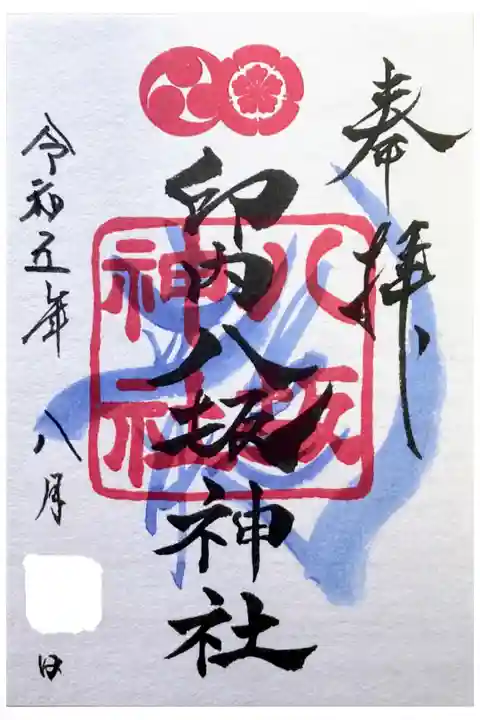 奉拝
印内八坂神社
八坂神社
令和五年 八月 日